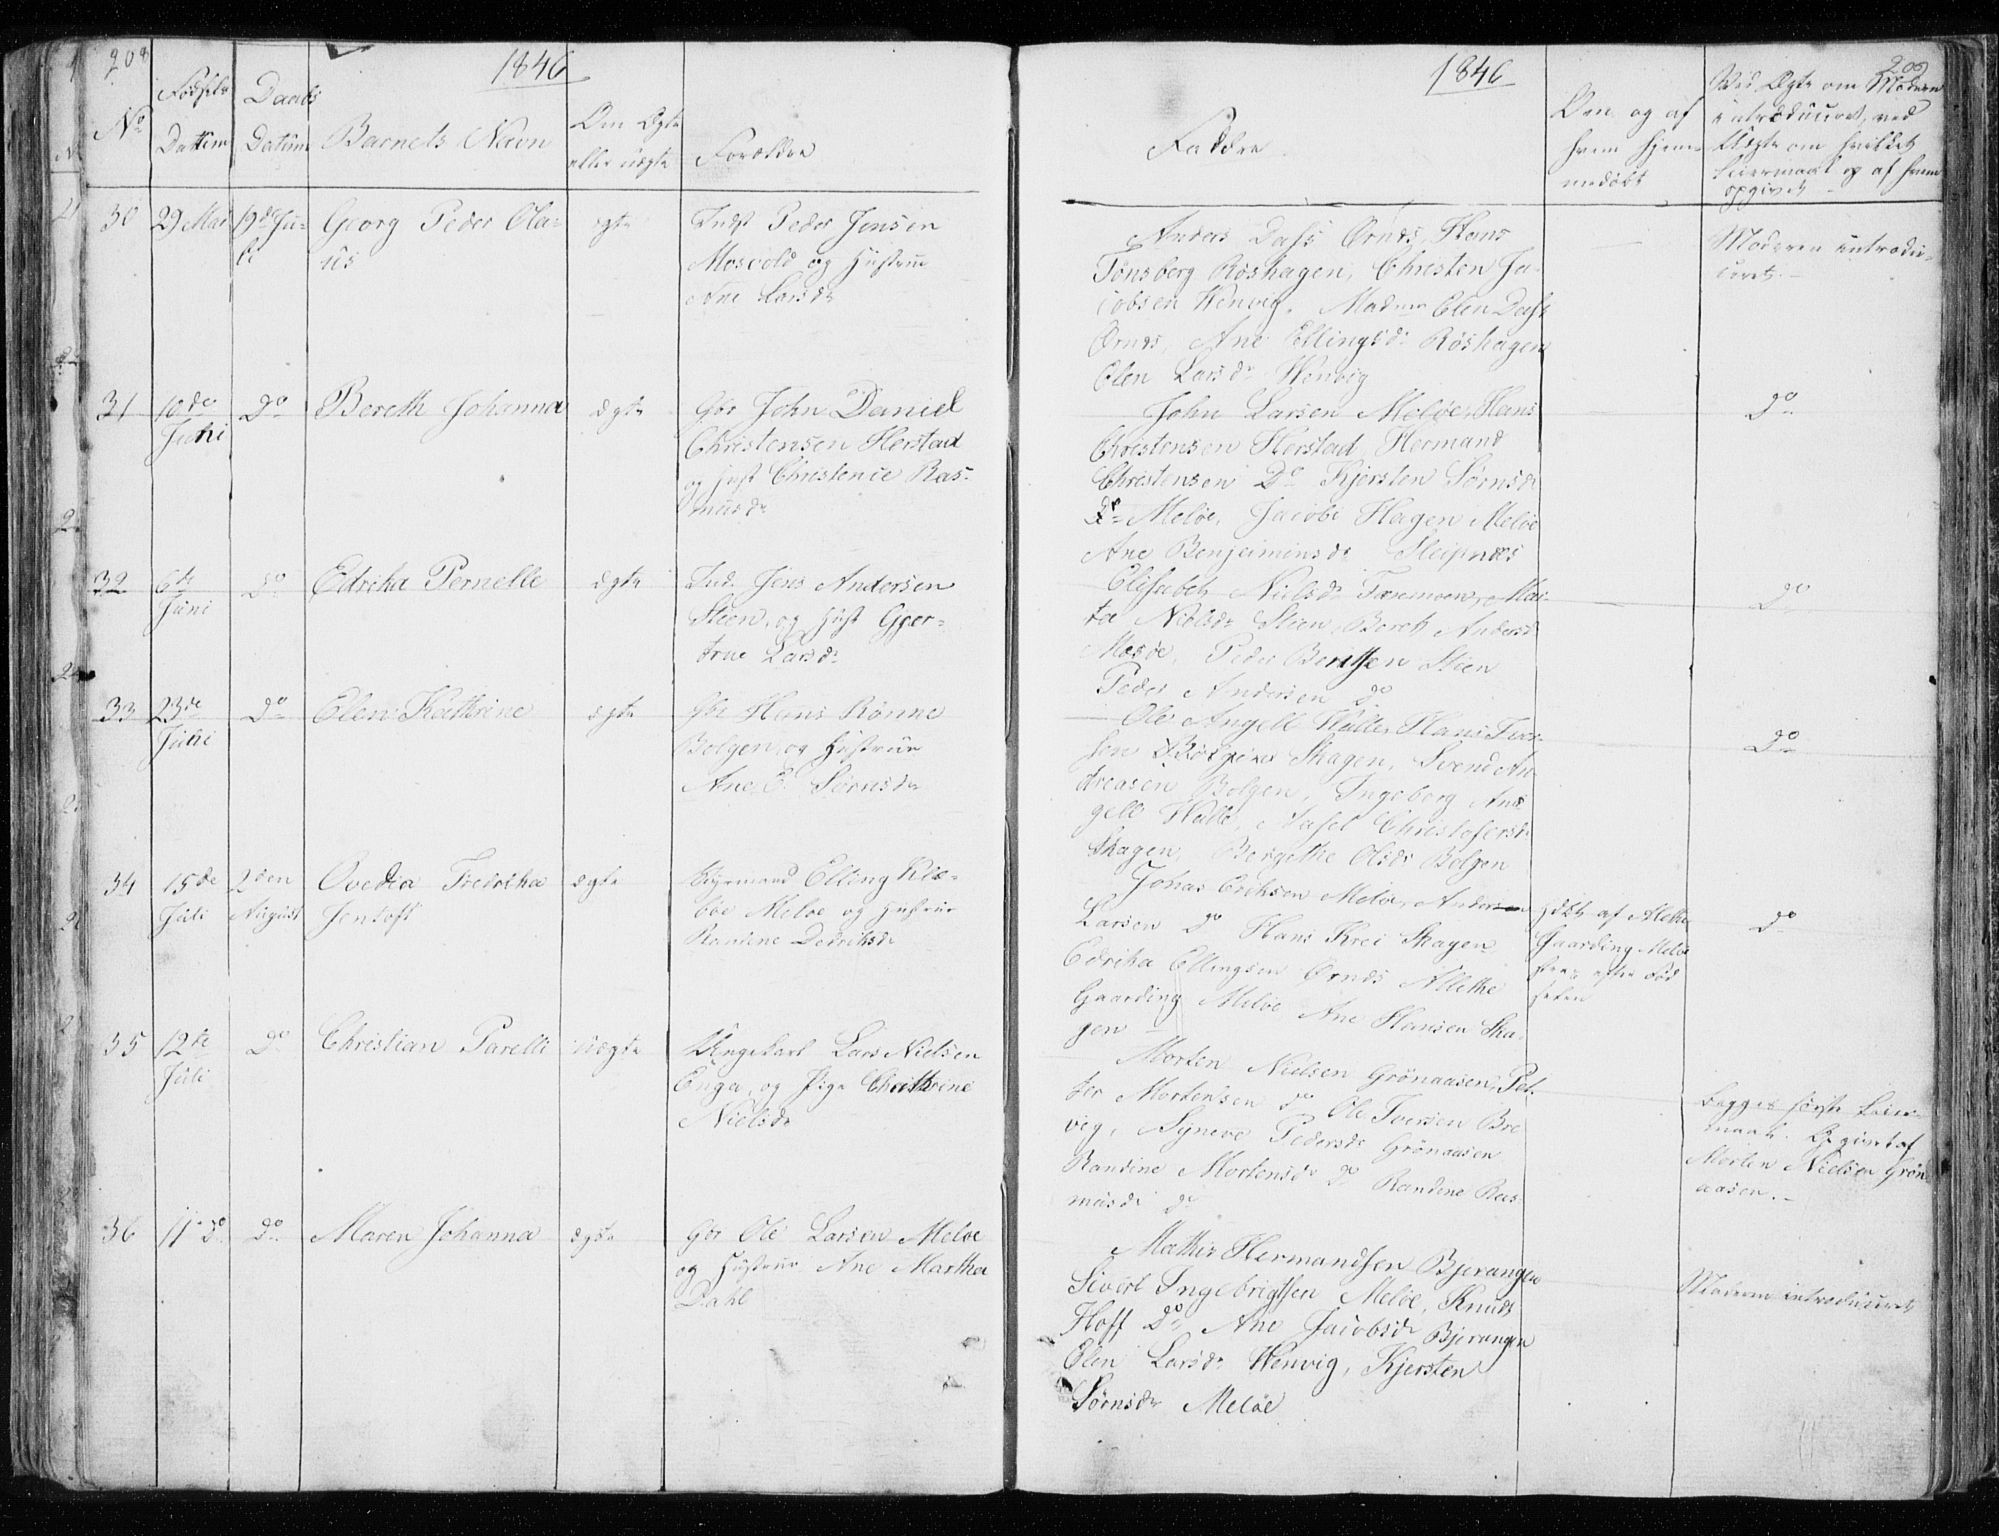 208
1846
No
Fødsels
Dattum
Daabs
Datum
Barnets Navn
Om Ægte
eller uægte
Forældre
30
29 Mai
19de Ju-
li
Georg Peder Ola-
us
ægte
Inds Peder Jensen
Mosvold og Hustrue
Ane Larsdr
31
10de
Juni
Do
Bereth Johanna
ægte
Gbr John Daniel
Christensen Herstad
og Hust Christence Ras-
musdr
32
6te
Juni
Do
Edrika Pernelle
ægte
Ind. Jens Andersen
Steen, og Hust Gjer-
true Larsdr
33
23de
Juni
Do
Elen Kathrine
ægte
Gbr Hans Rønne
Bolgen, og Hustrue
Ane E. Sørensdr
34
15de
Juli
2den
August
Ovedia Fredrika
Jentoft
ægte
Styrmand Elling Klæ-
böe Meløe og Hustrue
Randine Dedriksdr
35
12te
Juli
Do
Christian Parelli
uægte
Ungekarl Lars Nielsen
Enga, og Pige Chrithrine
Nielsdr
36
11 do
Do
Maren Johanna
ægte
Gbr Ole Larsen Meløe
og Hustrue Ane Martha
Dahl
1846
209
Faddre
Om og af
hvem hjem-
medøbt
Ved Ægte om Moderen
introduceret, ved
Uægte om hvilket
Leiermaal og af hvem
opgivet
Anders Dass Ørnes, Hans
Tønsberg Røshagen, Christen Ja-
cobsen Wenvig, Madme Elen Dass
Ørnes, Ane Ellingsdr Røshagen
Elen Larsdr Wenvig
Moderen introdu-
ceret.
John Larsen Meløe, Hans
Christensen Herstad Hermand
Christensen Do Kjersten Sørnsdr
Meløe, Jacobe Hagen Meløe
Ane Benjaminsdr Sleipnæs
Do
Elisabet Nielsdr Torsmoen, Mar-
ta Nielsdr Stien, Beret Andersdr
Mesøe, Peder Berntsen Stien
Peder Andersen do
Do
Ole Angell Halle, Hans Iver-
sen Skagen, Svend An-
dreasen Bolgen, Ingeborg An-
gell Halle, Christofersdr
Skagen, Bergithe Olsdr Bolgen
Do
Jonas Eriksen Meløe, Anders
Larsen do Hans Krei Skagen
Edrika Ellingsen Ørnes Allethe
Gaarding Meløe Ane Hansen Ska-
gen
Hdbt af Alethe
Gaarding Meløe
strax efter Fød
selen
Do
Morten Nielsen Grönaasen, Pet-
ter Mortensen do Ole Iversen Bre
vig, Syneve Pedersdr Grönaasen
Randine Mortensdr do Randine Ras-
musdr do
Begges første Leier-
maal. Opgivet af
Morten Nielsen Grøn
aasen.
Mathis Hermandsen Bjerangen
Sivert Ingebrigtsen Meløe, Knud
Hoff Do Ane Jacobsdr Bjerangen
Elen Larsdr Wenvig, Kjersten
Sørnsdr Meløe
Moderen introduceret